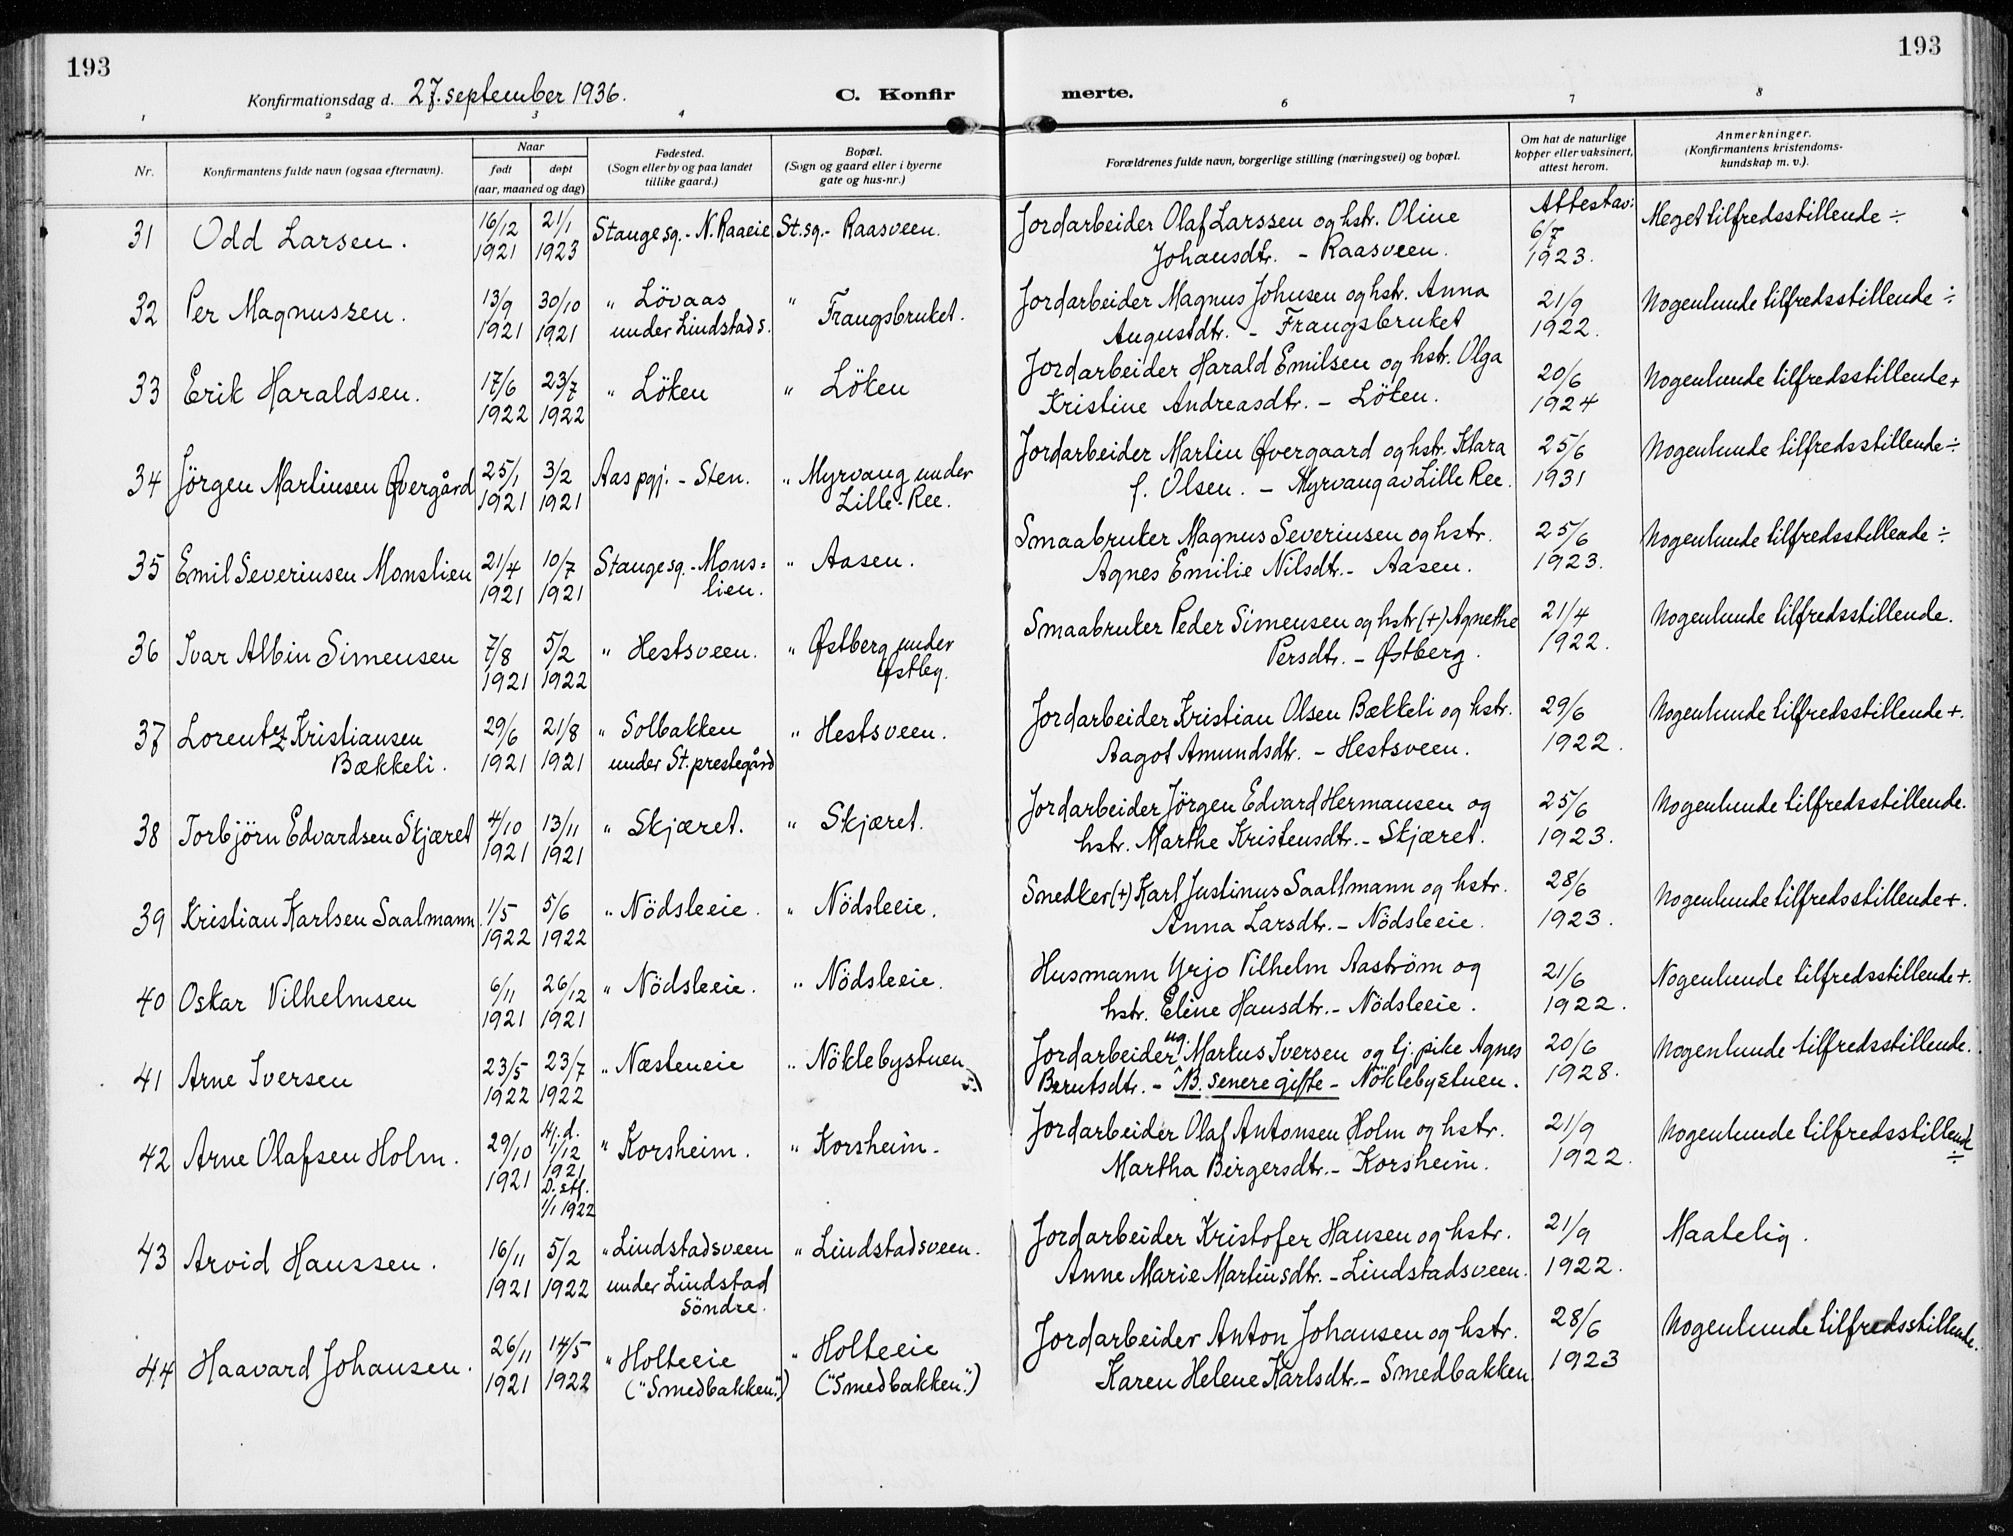 193
193
Konfirmationsdag d. 27. september 1936.
C. Konfir
merte.
1 2 3 4 6 7 8
Nr.
Konfirmantens fulde navn (ogsaa efternavn).
Naar
født
døpt
(aar, maaned og dag)
Fødested.
(Sogn eller by og paa landet
tillike gaard.)
Bopæl.
(Sogn og gaard eller i byerne
gate og hus-nr.)
Forældrenes fulde navn, borgerlige stilling (næringsvei) og bopæl.
Om hat de naturlige
kopper eller vaksinert,
attest herom.
Anmerkninger.
(Konfirmantens kristendoms-
kundskap m. v.).
Attest av:
31 Odd Larsen. 16/12 1921 21/1 1923 Stange sg. - N. Raaeie St. sg. - Raasveen. Jordarbeider Olaf Larssen og hstr. Oline
Johansdtr. - Raasveen. 6/7 1923. Meget tilfredsstillende ÷
32 Per Magnussen. 13/9 1921 30/10 1921 " Lövaas
under Lindstad s. " Frangsbruket. Jordarbeider Magnus Johnsen og hstr. Anna
Augustdtr. - Frangsbruket 21/9 1922. Nogenlunde tilfredsstillende ÷
33 Erik Haraldsen. 17/6 1922 23/7 1922 " Löken " Löken Jordarbeider Harald Emilsen og hstr. Olga
Kristine Andreasdtr. - Löken. 20/6 1924 Nogenlunde tilfredsstillende +
34 Jörgen Martinsen Øvergård 25/1 1921 3/2 1921 Aas pgj. - Sten. " Myrvang under
Lille-Ree. Jordarbeider Martin Øvergaard og hstr. Klara
f. Olsen. - Myrvang av Lille Ree. 25/6 1931 Nogenlunde tilfredsstillende ÷
35 Emil Severinsen Monslien 21/4 1921 10/7 1921 Stange sg. - Mons=
lien. " Aasen. Smaabruker Magnus Severinsen og hstr.
Agnes Emilie Nilsdtr. - Aasen. 25/6 1923. Nogenlunde tilfredsstillende ÷
36 Ivar Albin Simensen 7/8 1921 5/2 1922 " Hestsveen. " Østberg under
Østbg. Smaabruker Peder Simensen og hstr (+) Agnethe
Persdtr. - Østberg. 21/4 1922. Nogenlunde tilfredsstillende.
37 Lorentz Kristiansen
Bækkeli. 29/6 1921 21/8 1921 " Solbakken
under St. prestegård " Hestsveen. Jordarbeider Kristian Olsen Bækkeli og hstr.
Aagot Amundsdtr. - Hestsveen. 29/6 1922. Nogenlunde tilfredsstillende +.
38 Torbjörn Edvardsen Skjæret 4/10 1921 13/11 1921 " Skjæret. " Skjæret. Jordarbeider Jörgen Edvard Hermansen og
hstr. Marthe Kristensdtr. - Skjæret. 25/6 1923. Nogenlunde tilfredsstillende.
39 Kristian Karlsen Saalmann 1/5 1922 5/6 1922 " Nödsleeie. " Nödsleeie. Snedker (+) Karl Justinus Saaltmann og hstr.
Anna Larsdtr. - Nödsleeie. 28/6 1923. Nogenlunde tilfredsstillende +.
40 Oskar Vilhelmsen 6/11 1921 26/12 1921 " Nödsleeie. " Nödsleeie. Husmann Yrjo Vilhelm Aaström og
hstr. Eline Hansdtr. - Nödsleeie. 21/6 1922. Nogenlunde tilfredsstillende +.
41 Arne Iversen 23/5 1922 23/7 1922 " Næsteneie " Nöklebystuen Jordarbeider ug. Markus Iversen og tj. pike Agnes
Berntsdtr. - NB. senere gifte - Nöklebystuen. 20/6 1928. Nogenlunde tilfredsstillende.
42 Arne Olafsen Holm. 29/10 1921 Hj. d. 1/12 1921 D. stf. 1/1 1922 " Korsheim. " Korsheim. Jordarbeider Olaf Antonsen Holm og hstr.
Martha Birgersdtr. - Korsheim. 21/9 1922. Nogenlunde tilfredsstillende
÷
43 Arvid Hanssen. 16/11 1921 5/2 1922 " Lindstadsveen
under Lindstad
söndre. " Lindstadsveen. Jordarbeider Kristofer Hansen og hstr.
Anne Marie Martinsdtr. - Lindstadsveen. 21/9 1922. Maatelig.
44 Haavard Johansen. 26/11 1921 14/5 1922 " Holteeie
("Smedbakken".) " Holteeie
("Smedbakken".) Jordarbeider Anton Johansen og hstr.
Karen Helene Karlsdtr. - Smedbakken 28/6 1923 Nogenlunde tilfredsstillende.